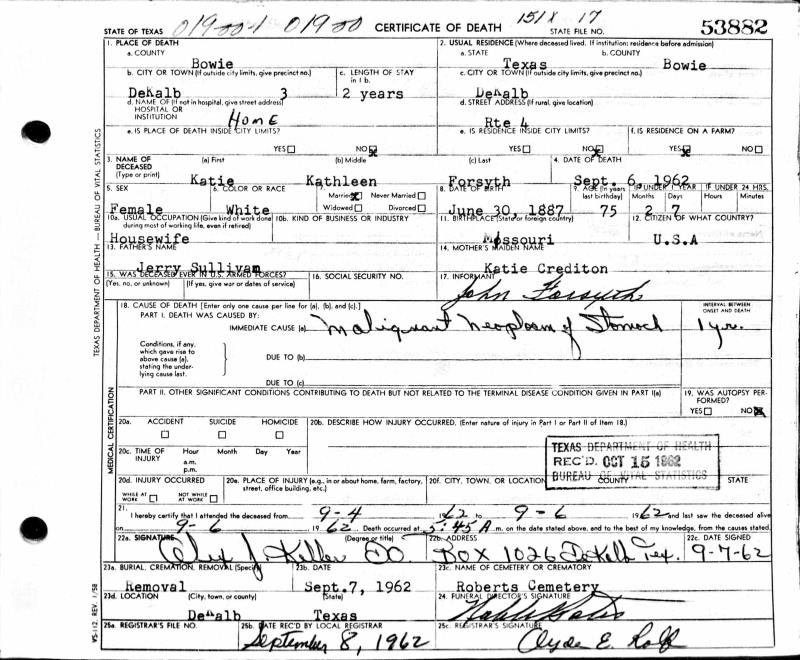 01900-1 01900 151X 17
STATE OF TEXAS CERTIFICATE OF DEATH STATE FILE NO. 53882
1. PLACE OF DEATH 2. USUAL RESIDENCE (Where deceased lived. If institution: residence before admission)
a. COUNTY a. STATE b. COUNTY
Bowie Texas Bowie
b. CITY OR TOWN (If outside city limits, give precinct no.) c. LENGTH OF STAY in 1 b. c. CITY OR TOWN (If outside city limits, give precinct no.)
DeKalb 3 2 years DeKalb
d. NAME OF (If not in hospital, give street address) HOSPITAL OR INSTITUTION d. STREET ADDRESS (If rural, give location)
Home Rte 4
e. IS PLACE OF DEATH INSIDE CITY LIMITS? e. IS RESIDENCE INSIDE CITY LIMITS? f. IS RESIDENCE ON A FARM?
YES NO X YES NO X YES X NO
3. NAME OF DECEASED (Type or print) (a) First (b) Middle (c) Last 4. DATE OF DEATH
Katie Kathleen Forsyth Sept. 6, 1962
5. SEX 6. COLOR OR RACE 7. Married X Never Married Widowed Divorced 8. DATE OF BIRTH 9. AGE (In years last birthday) IF UNDER 1 YEAR Months Days IF UNDER 24 HRS. Hours Minutes
Female White June 30, 1887 75 2 7
10a. USUAL OCCUPATION (Give kind of work done during most of working life, even if retired) 10b. KIND OF BUSINESS OR INDUSTRY 11. BIRTHPLACE (State or foreign country) 12. CITIZEN OF WHAT COUNTRY?
Housewife Missouri U.S.A
13. FATHER'S NAME 14. MOTHER'S MAIDEN NAME
Jerry Sullivan Katie Crediton
15. WAS DECEASED EVER IN U.S. ARMED FORCES? 16. SOCIAL SECURITY NO. 17. INFORMANT
(Yes, no, or unknown) (If yes, give war or dates of service) John Forsyth
18. CAUSE OF DEATH [Enter only one cause per line for (a), (b), and (c).] INTERVAL BETWEEN ONSET AND DEATH
PART I. DEATH WAS CAUSED BY:
IMMEDIATE CAUSE (a) Malignant Neoplasm of Stomach 1 yr.
Conditions, if any, which gave rise to above cause (a), stating the underlying cause last.
DUE TO (b)
DUE TO (c)
PART II. OTHER SIGNIFICANT CONDITIONS CONTRIBUTING TO DEATH BUT NOT RELATED TO THE TERMINAL DISEASE CONDITION GIVEN IN PART I(a) 19. WAS AUTOPSY PERFORMED?
YES NO X
20a. ACCIDENT SUICIDE HOMICIDE 20b. DESCRIBE HOW INJURY OCCURRED. (Enter nature of injury in Part I or Part II of Item 18.)
20c. TIME OF INJURY Hour a.m. p.m. Month Day Year
TEXAS DEPARTMENT OF HEALTH
REC'D. OCT 15 1962
BUREAU OF VITAL STATISTICS
20d. INJURY OCCURRED WHILE AT WORK NOT WHILE AT WORK 20e. PLACE OF INJURY (e.g., in or about home, farm, factory, street, office building, etc.) 20f. CITY, TOWN, OR LOCATION COUNTY STATE
21. I hereby certify that I attended the deceased from 9-4 1962 to 9-6 1962 and last saw the deceased alive
on 9-6 1962. Death occurred at 5:45 A m. on the date stated above, and to the best of my knowledge, from the causes stated.
22a. SIGNATURE (Degree or title) 22b. ADDRESS 22c. DATE SIGNED
DO. Box 1026 DeKalb Tex. 9-7-62
23a. BURIAL, CREMATION, REMOVAL (Specify) 23b. DATE 23c. NAME OF CEMETERY OR CREMATORY
Removal Sept.7, 1962 Roberts Cemetery
23d. LOCATION (City, town, or county) (State) 24. FUNERAL DIRECTOR'S SIGNATURE
DeKalb Texas
25a. REGISTRAR'S FILE NO. 25b. DATE REC'D BY LOCAL REGISTRAR 25c. REGISTRAR'S SIGNATURE
September 8, 1962 Clyde E.
TEXAS DEPARTMENT OF HEALTH — BUREAU OF VITAL STATISTICS
MEDICAL CERTIFICATION
VS-112 REV. 1/58